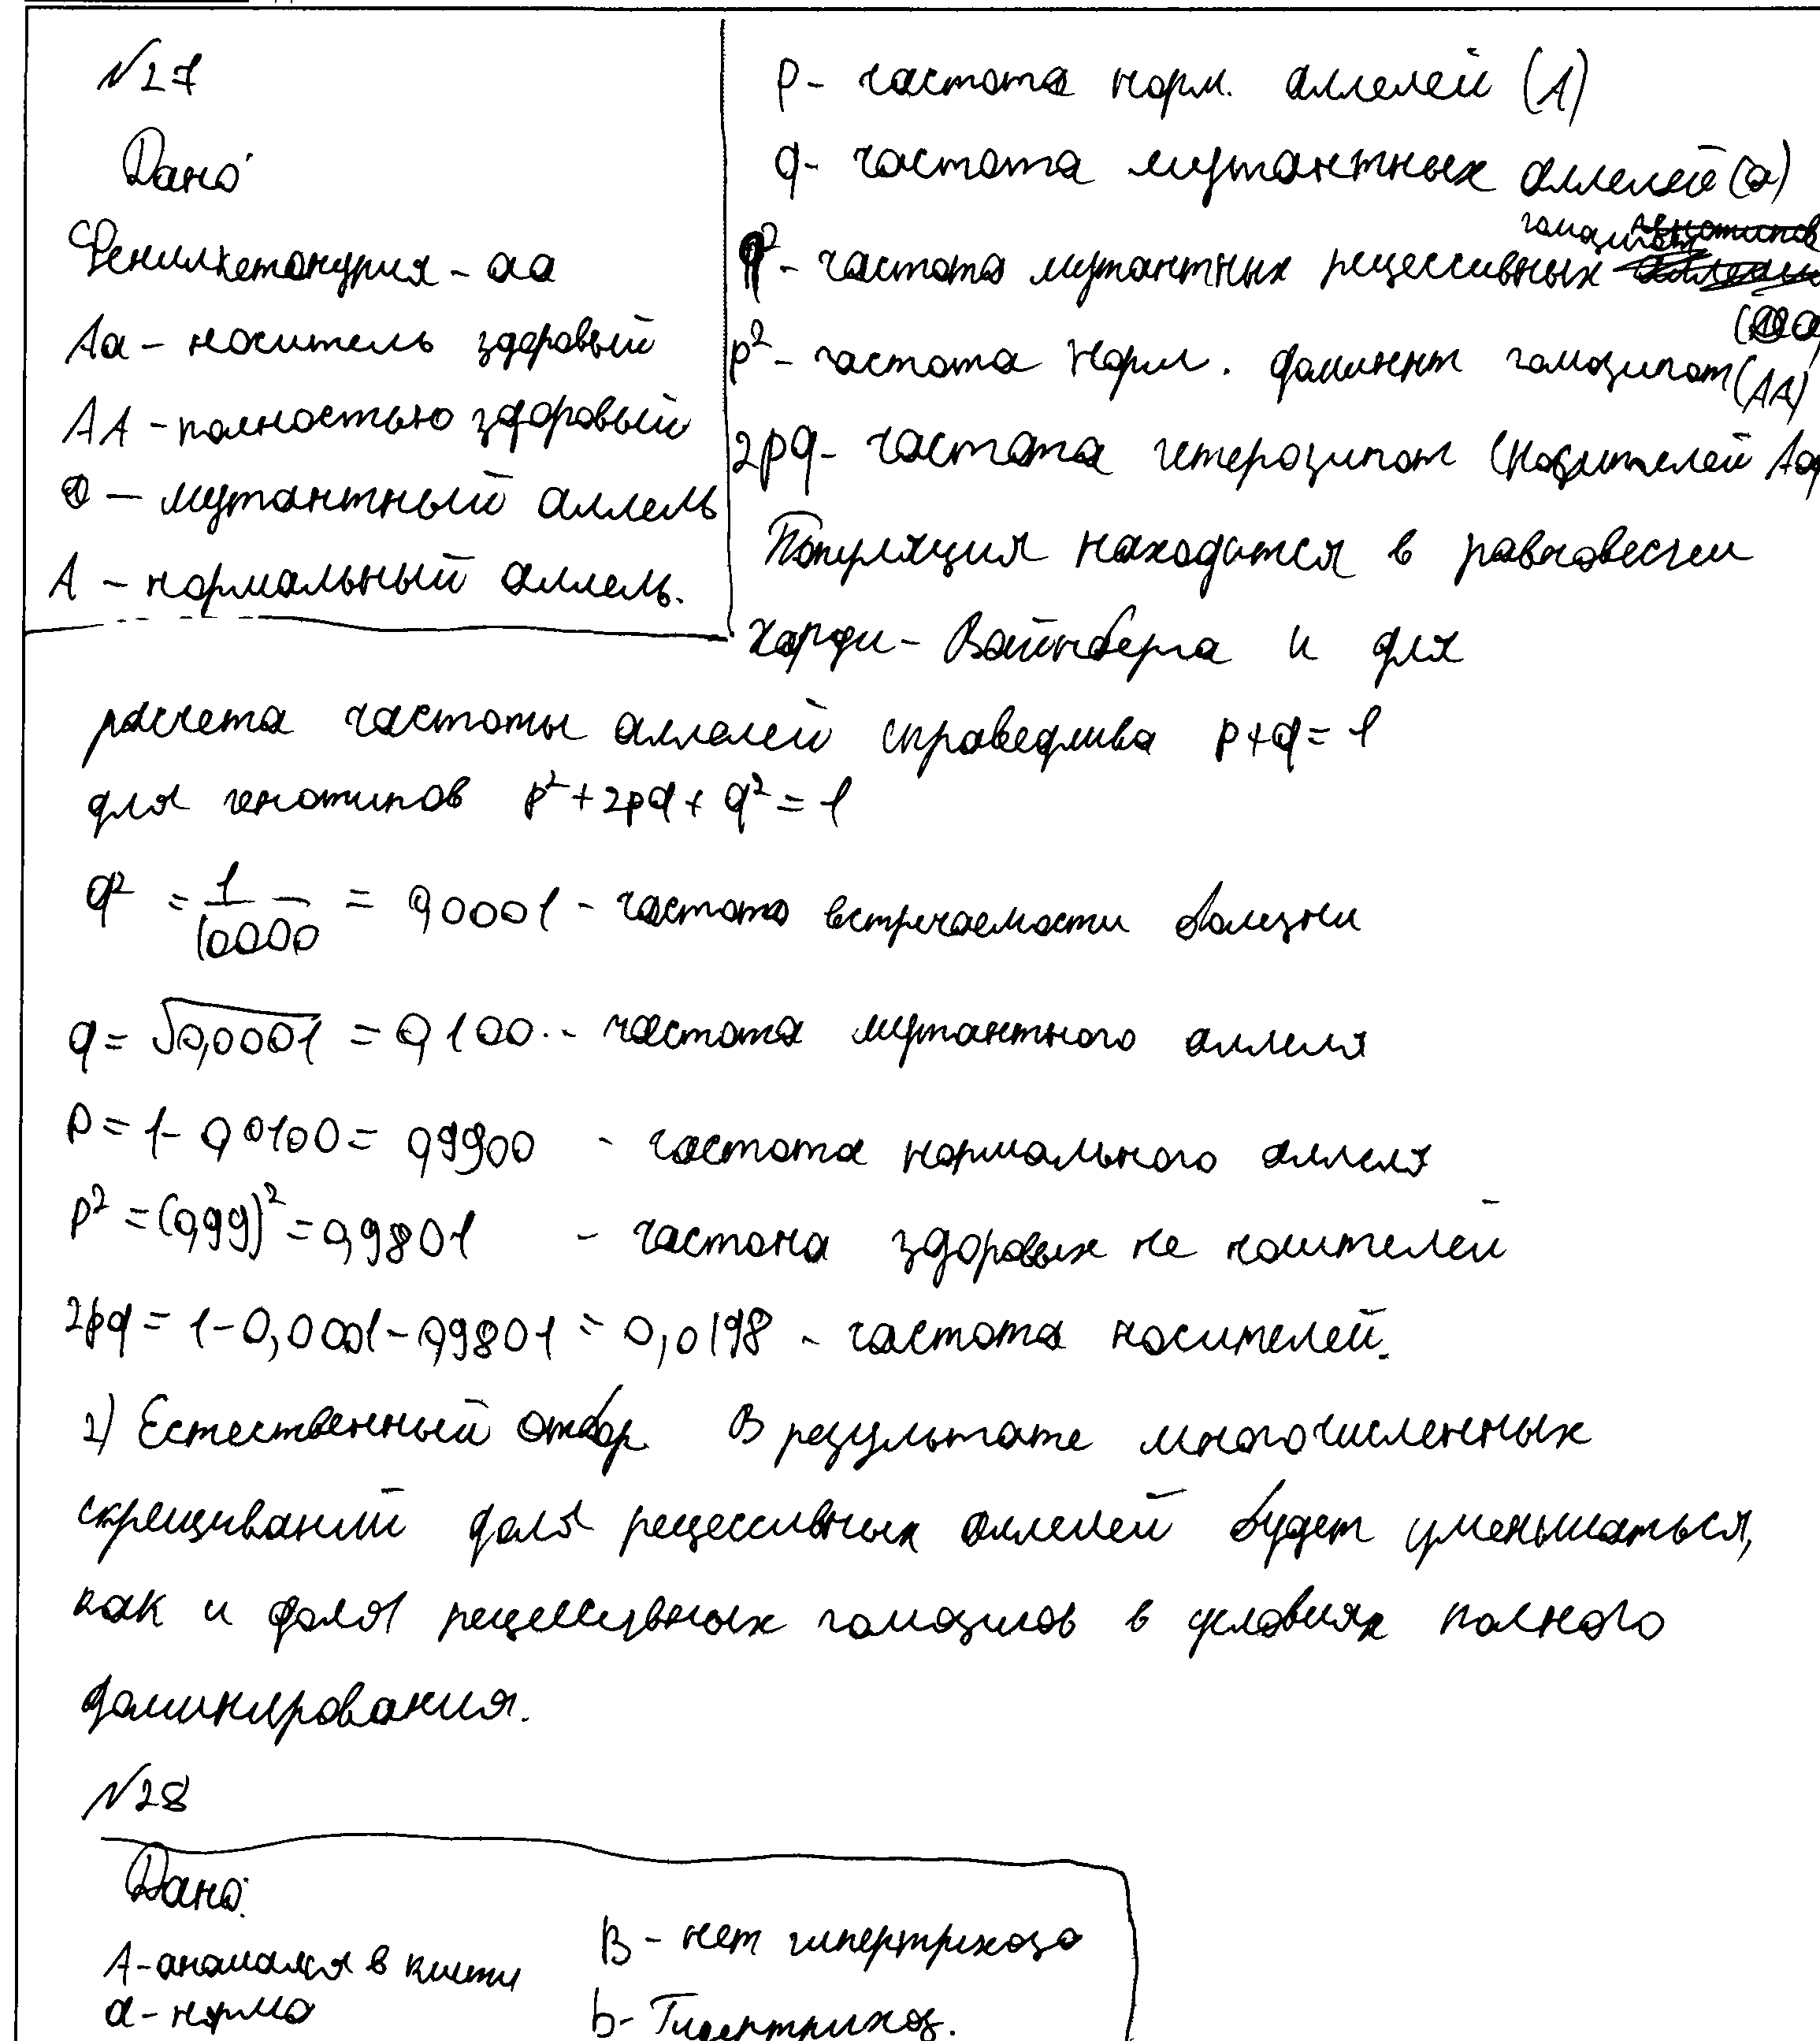 №27
Дано:
Фенилкетонурия - аа
Аа - носитель здоровый
АА - полностью здоровый
а - мутантный аллель
А - нормальный аллель.
p - частота норм. аллелей (А)
q - частота мутантных аллелей (а)
гомозигот
q² - частота мутантных рецессивных
(аа)
p² - частота норм. доминнт гомозигот (АА)
2pq - частота гетерозигот (носителей Аа)
Популяция находится в равновесии
Харди - Вайнберга и для
расчета частоты аллелей справедлива p+q=1
для генотипов p²+2pq+q²=1
q² = 1/10000 = 0,0001 - частота встречаемости болезни
q = √0,0001 = 0,100 - частота мутантного аллеля
P = 1 - 0,0100 = 0,9900 - частота нормального аллеля
P² = (0,99)² = 0,9801 - частота здоровых не носителей
2pq = 1-0,0001-0,9801 = 0,0198 - частота носителей.
2) Естественный отбор. В результате многочисленных
скрещиваний доля рецессивных аллелей будет уменьшаться,
как и доля рецессивных гомозигов в условиях полного
доминирования.
№28
Дано:
А - аномалия в кисти
а - норма
В - нет гипертрихоза
b - Гипертрихоз.